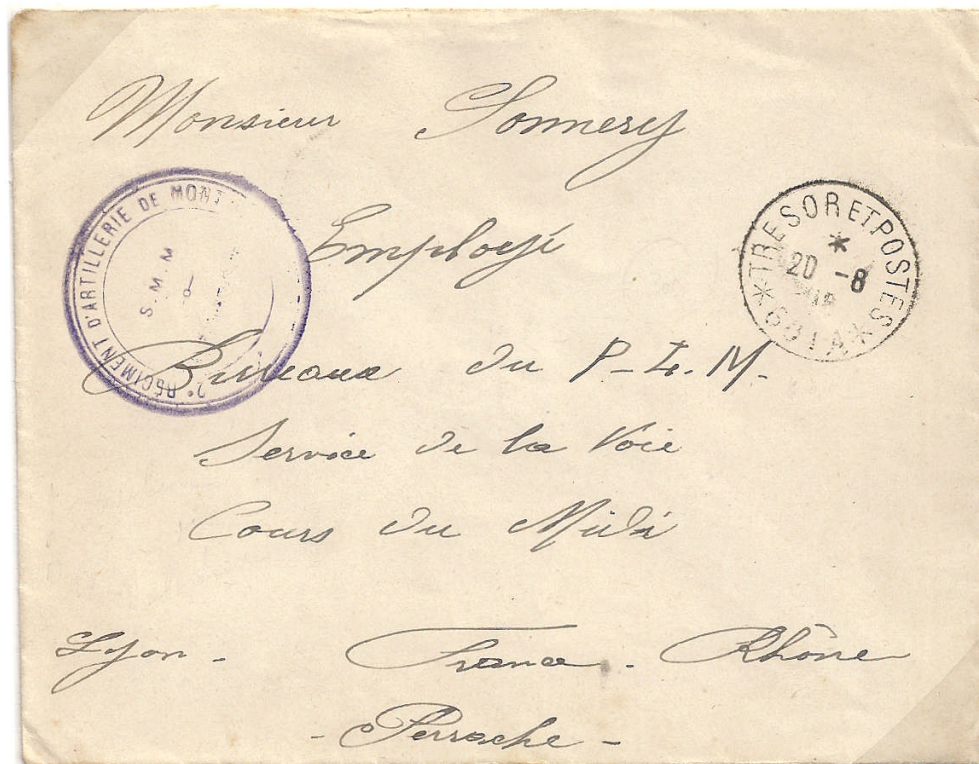 Monsieur Sonnery
2e RÉGIMENT D'ARTILLERIE DE MONT
S. M. M
TRESOR ET POSTES
20 -8
Employé
Bureaux du P-L.M.
Service de la Voie
Cours du Midi
Lyon - France - Rhône
- Perrache -